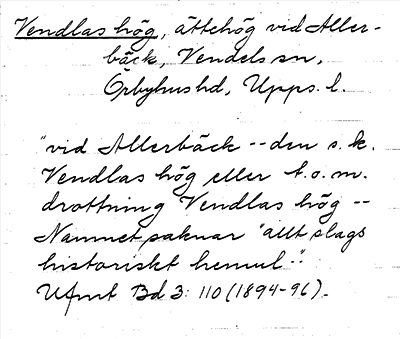 Vendlas hög, ättehög vid Aller-
bäck, Vendels sn,
Örbyhus hd, Upps. l.
"vid Allerbäck -- den s.k.
Vendlas hög eller t.o.m.
drottning Vendlas hög --
Namnet saknar "allt slags
historiskt hemul".
UFmt Bd 3: 110 (1894-96).